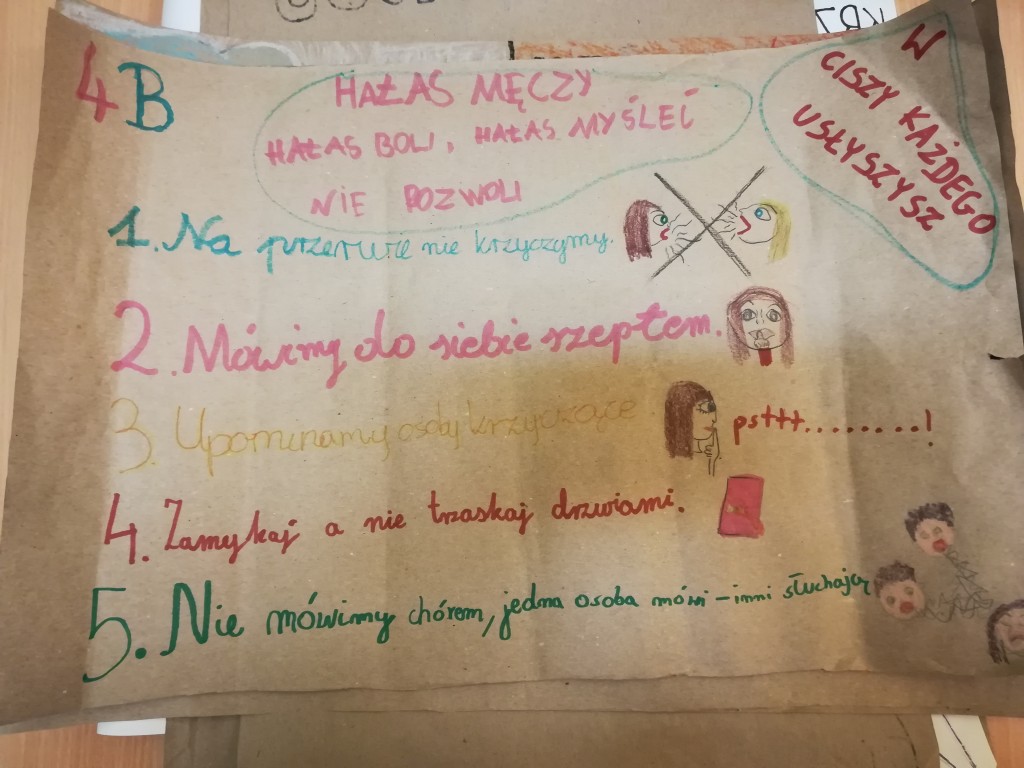 4B
HAŁAS MĘCZY
HAŁAS BOLI, HAŁAS MYŚLEĆ
NIE POZWOLI
W
CISZY KAŻDEGO
USŁYSZYSZ
1. Na przerwie nie krzyczymy.
2. Mówimy do siebie szeptem.
3. Upominamy osoby krzyczące.
psttt........!
4. Zamykaj a nie trzaskaj drzwiami.
5. Nie mówimy chórem, jedna osoba mówi - inni słuchają